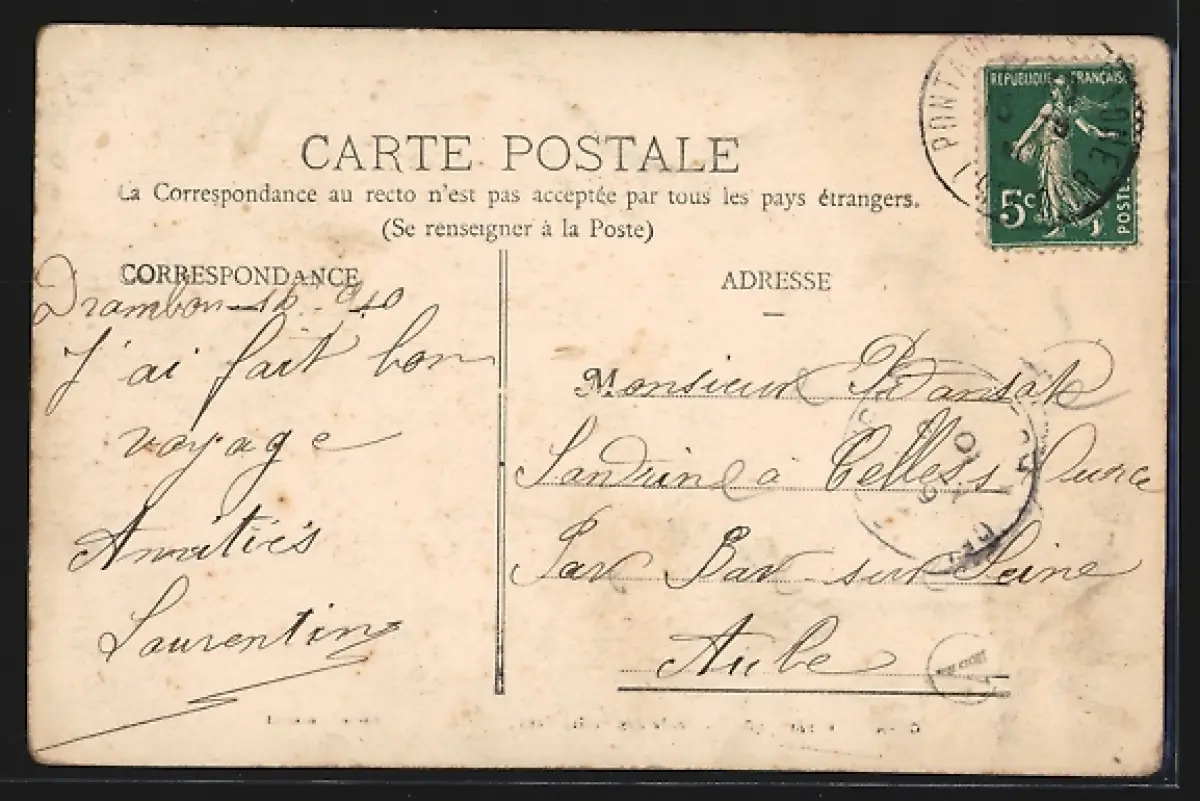 CARTE POSTALE
La Correspondance au recto n'est pas acceptée par tous les pays étrangers.
(Se renseigner à la Poste)
REPUBLIQUE FRANÇAISE
5c
POSTES
PONTA
CORRESPONDANCE
Drambon
J'ai fait bon
voyage
Amitiés
Laurentin
ADRESSE
Monsieur
Sandrine à Celles s Ource
Par Bar sur Seine
Aube